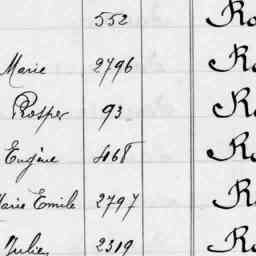 552 Ro
Marie 2796 Ro
Prosper 93 Ro
Eugène 4168 Ro
Marie Emile 2797 Ro
Julie 2319 Ro